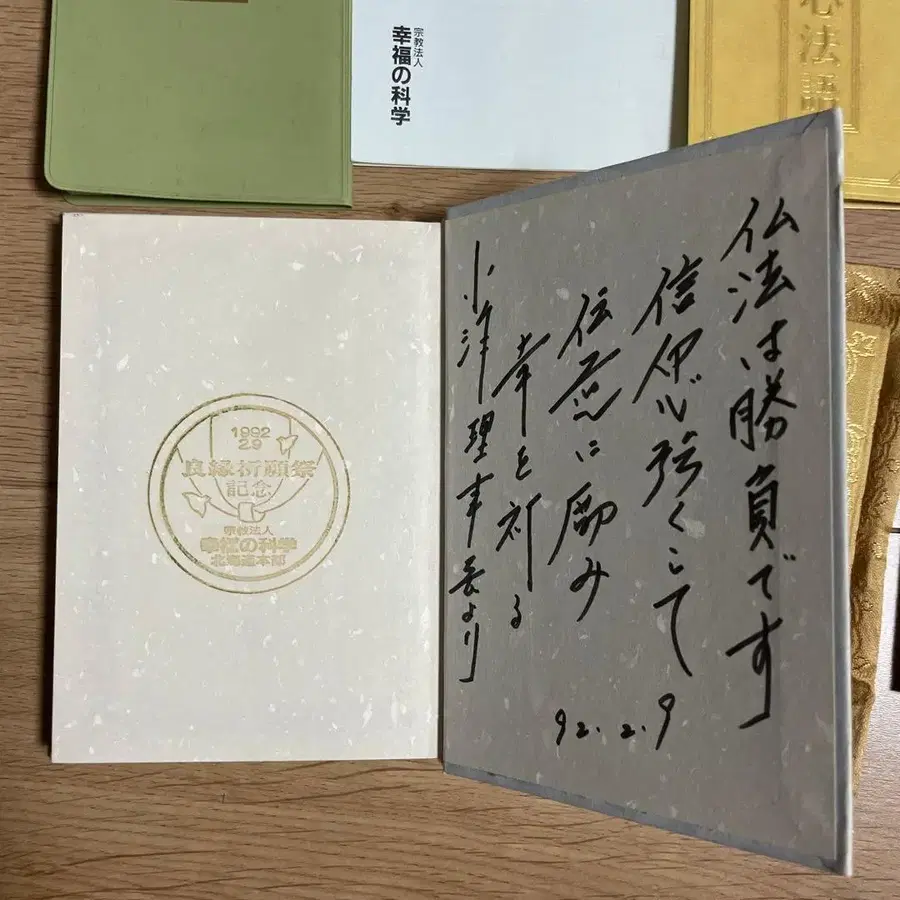 宗教法人
幸福の科学
心法語
1992
2.9
良縁祈願祭
記念
宗教法人
幸福の科学
北海道本部
仏法は勝負です
信仰心強くして
伝道に励み
幸を祈る
小津理事長より
92.2.9